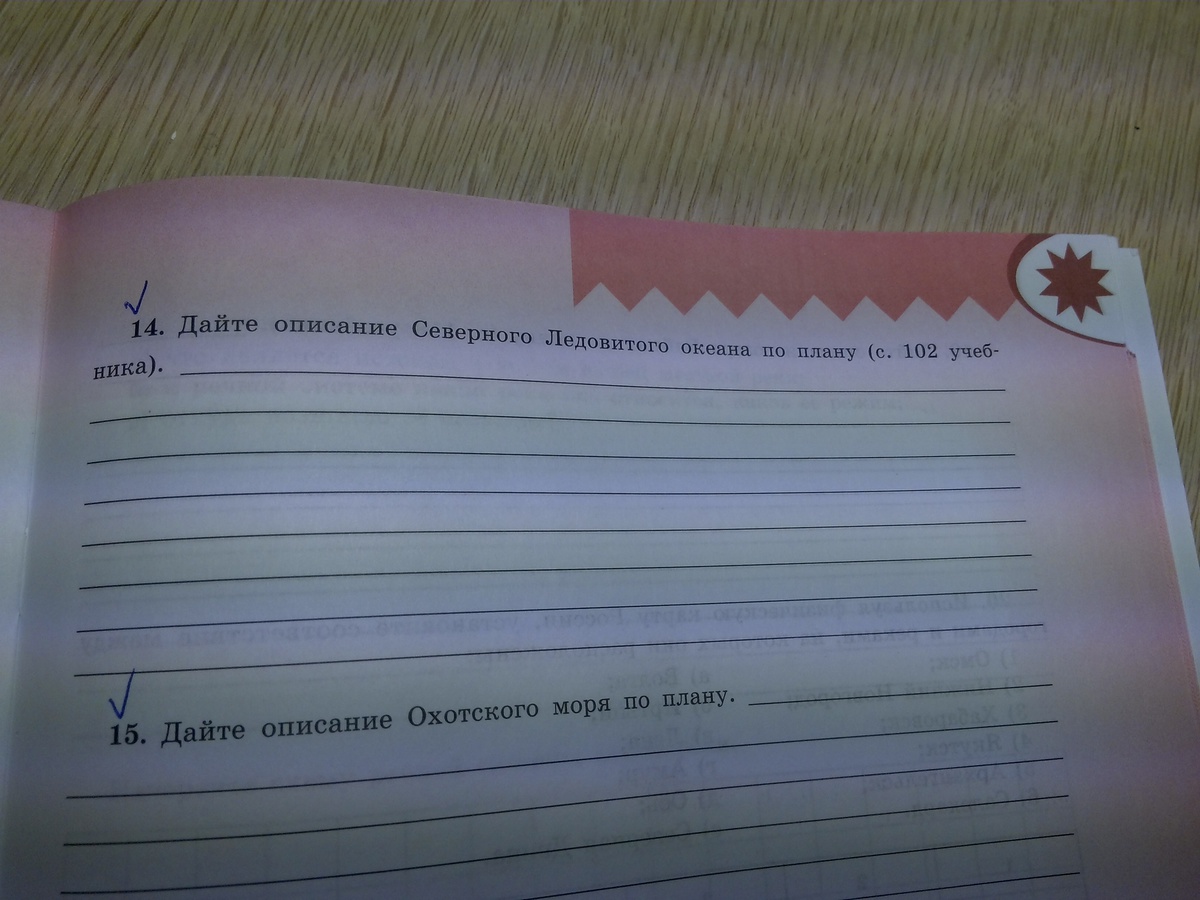 14. Дайте описание Северного Ледовитого океана по плану (с. 102 учеб-
ника).
15. Дайте описание Охотского моря по плану.